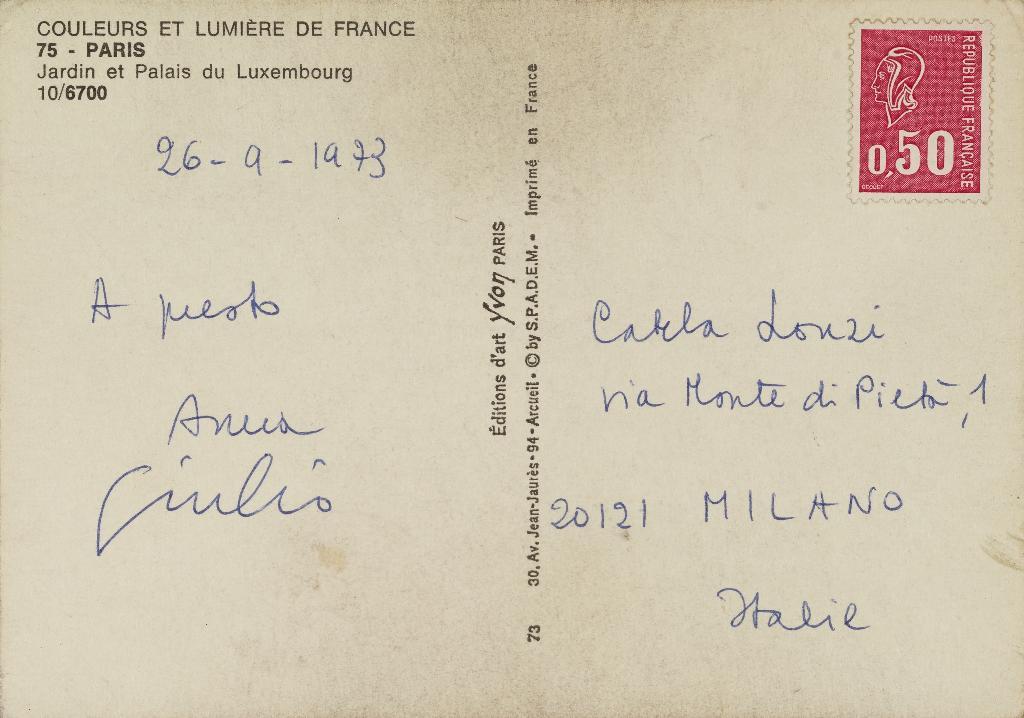 COULEURS ET LUMIÈRE DE FRANCE
75 - PARIS
Jardin et Palais du Luxembourg
10/6700
26-9-1973
A presto
Anna
Giulio
Éditions d'art Yvon PARIS
73 30, Av. Jean-Jaurès • 94 - Arcueil • © by S.P.A.D.E.M. • Imprimé en France
POSTES
REPUBLIQUE FRANÇAISE
0,50
BEQUET
Carla Lonzi
via Monte di Pietà, 1
20121 MILANO
Italie